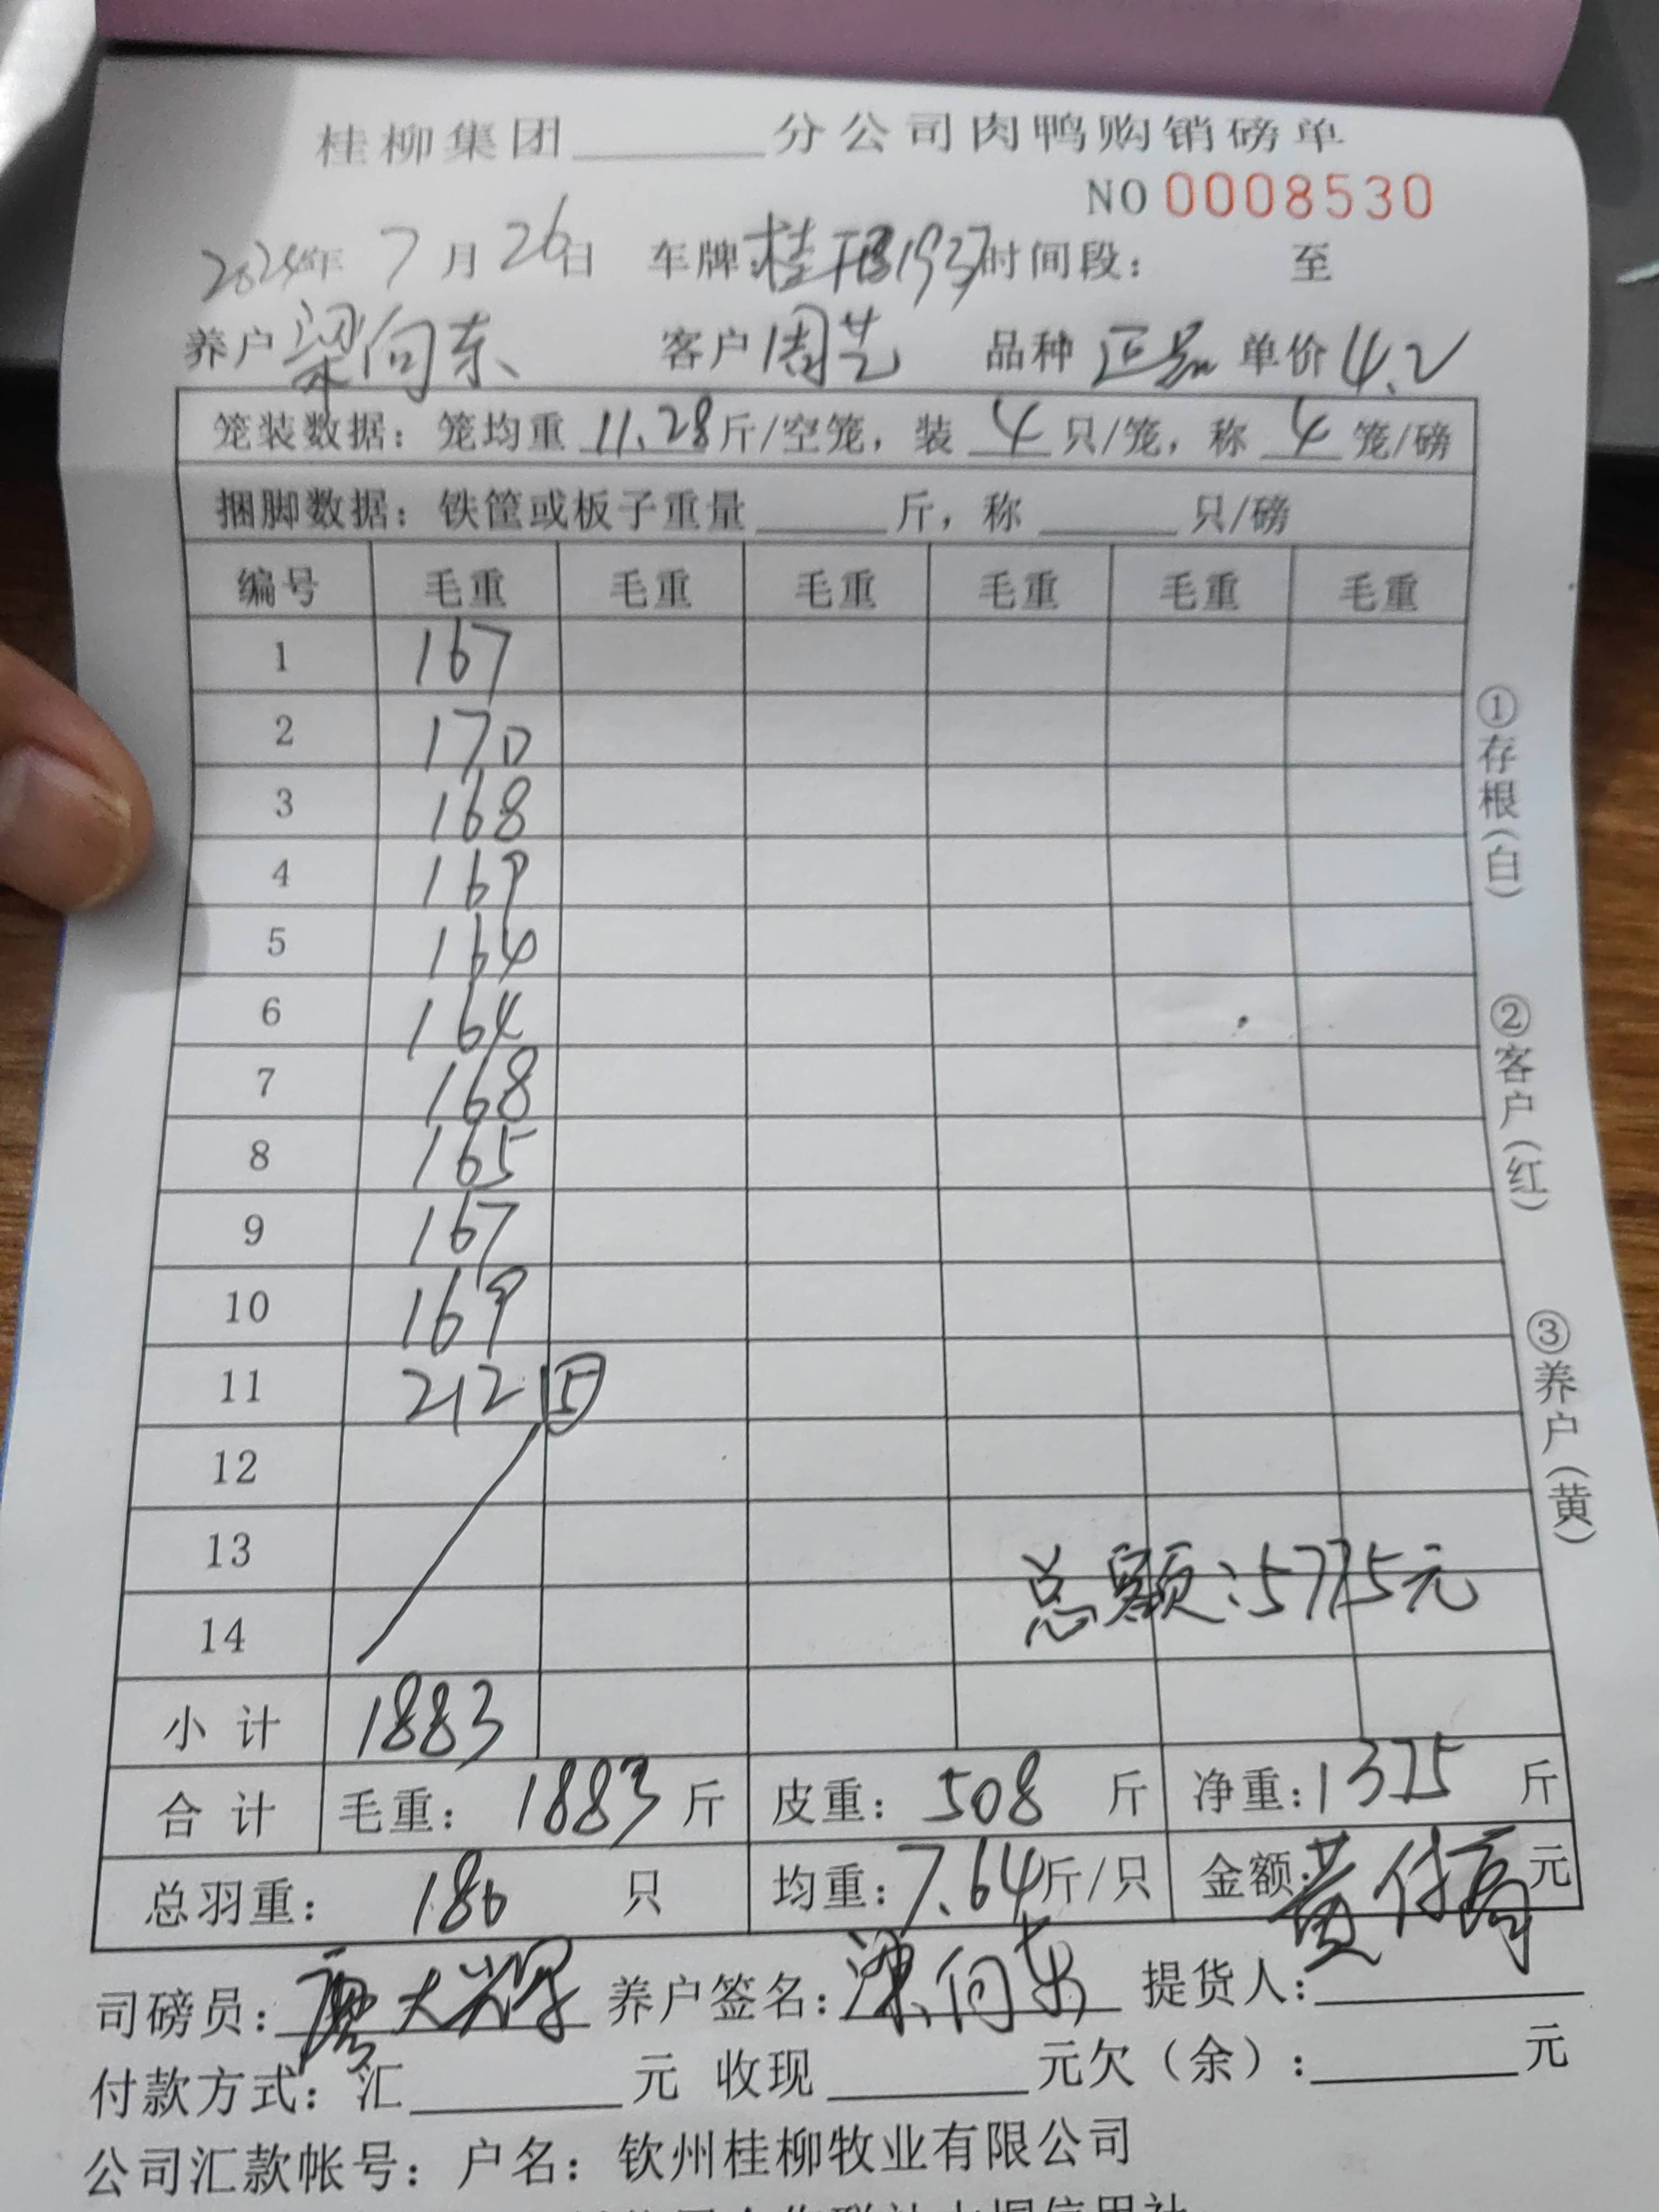 桂柳集团______分公司肉鸭购销磅单
NO 0008530
2024年 7月 26日 车牌:桂 时间段: 至
养户 梁向东 客户 周艺 品种 正品 单价 4.2
笼装数据: 笼均重 11.28斤/空笼, 装 4 只/笼, 称 4 笼/磅
捆脚数据: 铁筐或板子重量______斤, 称______只/磅
编号 毛重 毛重 毛重 毛重 毛重 毛重
1 167
2 170
3 168
4 169
5 164
6 164
7 168
8 165
9 167
10 169
11 212 ⑤
12
13
总额:5775元
14
小计 1883
合计 毛重: 1883 斤 皮重: 508 斤 净重: 1375 斤
总羽重: 180 只 均重: 7.64斤/只 金额: 元
司磅员: 廖大 养户签名: 梁向东 提货人: 黄付
付款方式: 汇______元 收现______元欠(余):______元
公司汇款帐号: 户名: 钦州桂柳牧业有限公司
①存根(白)
②客户(红)
③养户(黄)